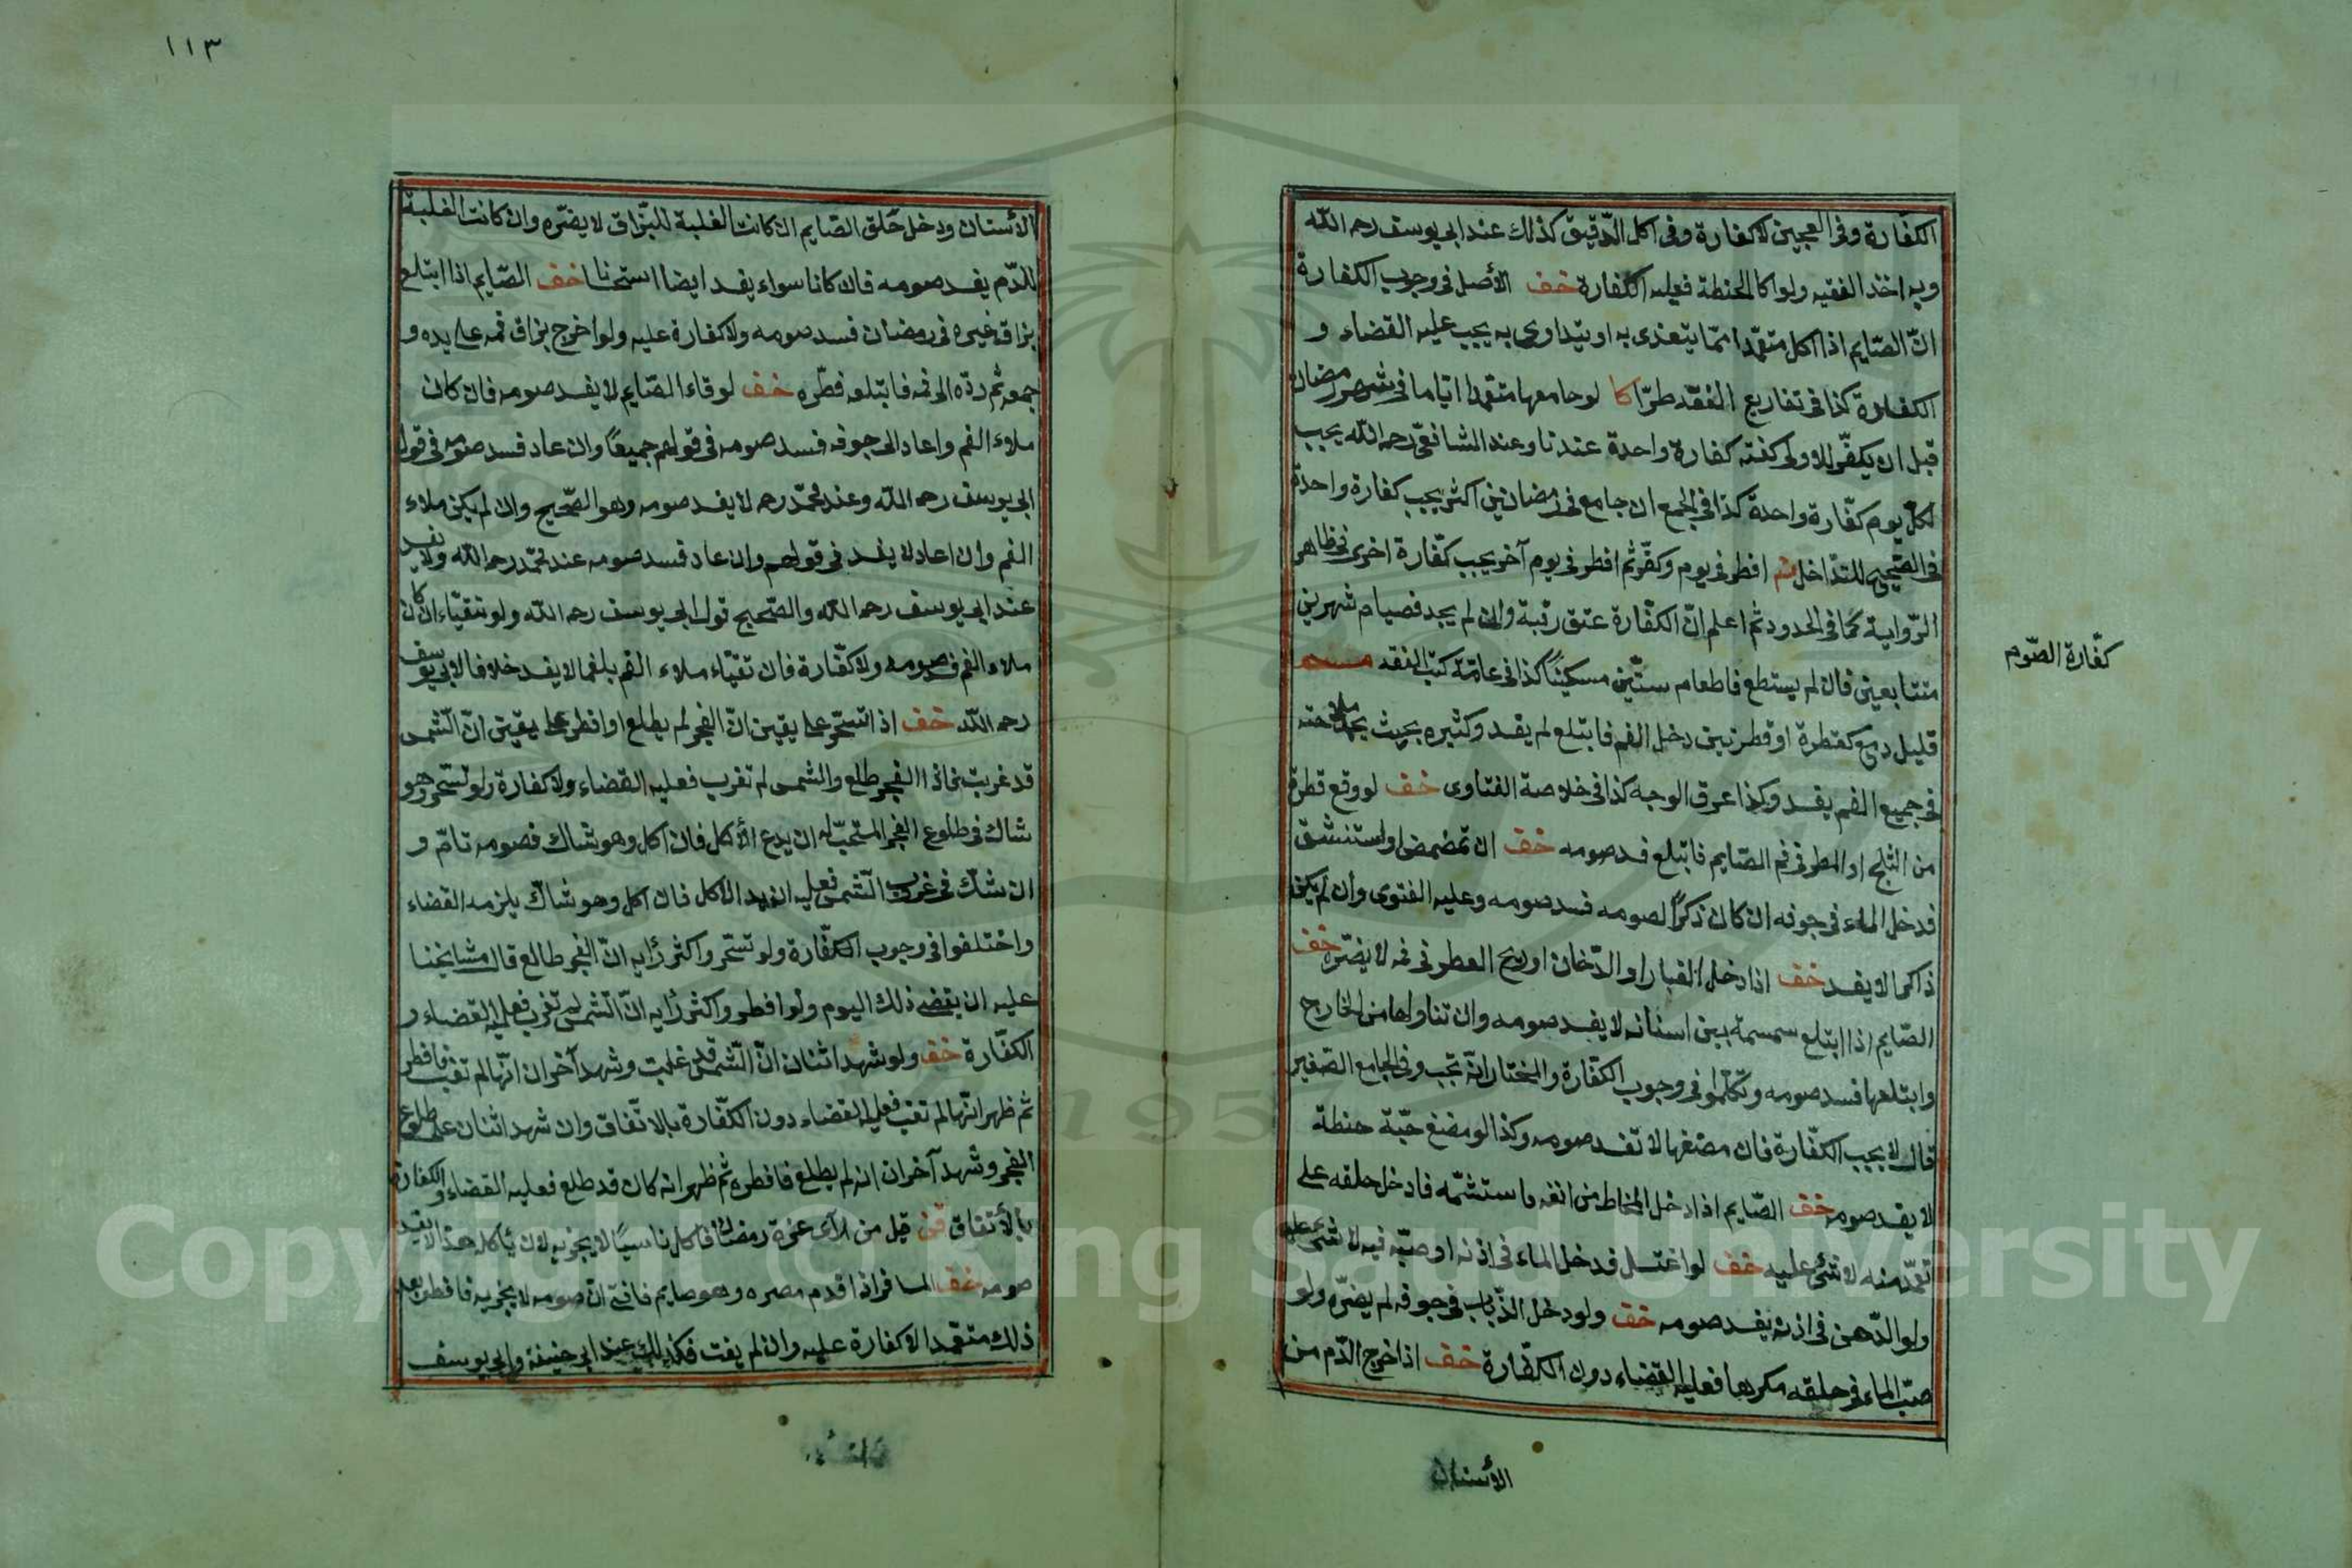 الكفّارة وفى العجين لا كفارة وفى اكل الدّقيق كذلك عند ابى يوسف رحمه اللّه
وبه اخذ الفقيه ولو اكل الحنطة فعليه الكفارة خف الأصل فى وجوب الكفارة
انّ الصّايم اذا اكل متعمّدا ممّا يتغذى به او يتداوى به يجب عليه القضاء و
الكفارة كذا فى تفاريع الفقه طرّا كا لو جامعها متعمّدا ايّاما فى شهر رمضان
قبل ان يكفّر للاولى كفته كفارة واحدة عندنا وعند الشافعىّ رحمه اللّه يجب
لكلّ يوم كفّارة واحدة كذا فى الجمع ان جامع فى رمضانين اكثر يجب كفارة واحدة
فى الصّحيح للتداخل افطر فى يوم وكفّر ثم افطر فى يوم آخر يجب كفّارة اخرى فى ظاهر
الرّواية كما فى الحدود ثم اعلم انّ الكفّارة عتق رقبة وان لم يجد فصيام شهرين
متتابعين فان لم يستطع فاطعام ستّين مسكينًا كذا فى عامّة كتب الفقه
قليل دمع كقطرة او قطرتين دخل الفم فابتلع لم يفسد وكثيره بحيث يجد ملوحته
فى جميع الفم يفسد وكذا عرق الوجه كذا فى خلاصة الفتاوى خف لو وقع قطرة
من الثلج او المطر فى فم الصّايم فابتلع فسد صومه خف ان تمضمض او استنشق
فدخل الماء فى جوفه ان كان ذكرًا لصومه فسد صومه وعليه الفتوى وان لم يكن
ذاكرا لا يفسد خف اذا دخل الغبار او الدّخان او ريح العطر فى فمه لا يضرّه خف
الصّايم اذا ابتلع سمسمة بين اسنانه لا يفسد صومه وان تناولها من الخارج
وابتلعها فسد صومه وتكلّموا فى وجوب الكفّارة والمختار انّه تجب وفى الجامع الصّغير
قال لا يجب الكفّارة فان مضغها لا تفسد صومه وكذا لو مضغ حبّة حنطة
لا يفسد صومه خف الصّايم اذا دخل المخاط من انفه فاستشمّه فادخل حلقه على
تعمّد منه لا شئ عليه خف لو اغتسل فدخل الماء فى اذنه او صبّه فيه لا شئ عليه
ولو الدّهن فى اذنه يفسد صومه خف ولو دخل الذّباب فى جوفه لم يضرّه ولو
صبّ الماء فى حلقه مكرها فعليه القضاء دون الكفّارة خف اذا خرج الدّم من
كفّارة الصّوم
الأسنان
١١٣
الأسنان ودخل حلق الصّايم ان كانت الغلبة للبزاق لا يضرّه وان كانت الغلبة
للدّم يفسد صومه فان كانا سواء يفسد ايضا استحسانا خف الصّايم اذا ابتلع
بزاق غيره فى رمضان فسد صومه ولا كفارة عليه ولو اخرج بزاق فمه على يده و
جمعه ثم ردّه الى فمه فابتلعه فطّره خف لو قاء الصّايم لا يفسد صومه فان كان
ملاء الفم واعاد الى جوفه فسد صومه فى قولهم جميعًا وان عاد فسد صومه فى قول
ابى يوسف رحمه اللّه وعند محمّد رحمه لا يفسد صومه وهو الصّحيح وان لم يكن ملاء
الفم وان اعاد لا يفسد فى قولهم وان عاد فسد صومه عند محمّد رحمه اللّه ولا يفسد
عند ابى يوسف رحمه اللّه والصّحيح قول ابى يوسف رحمه اللّه ولو تقيّاء ان كان
ملاء الفم فسد صومه ولا كفّارة فان تقيّاء ملاء الفم بلغما لا يفسد خلافا لابى يوسف
رحمه اللّه خف اذا تسحّر على يقين انّ الفجر لم يطلع او افطر على يقين انّ الشّمس
قد غربت فاذا الفجر طلع والشمس لم تغرب فعليه القضاء ولا كفارة ولو تسحّر وهو
شاك فى طلوع الفجر المستحبّ له ان يدع الأكل فان اكل وهو شاك فصومه تامّ و
ان شكّ فى غروب الشّمس فعليه ان يدع الاكل فان اكل وهو شاكّ يلزمه القضاء
واختلفوا فى وجوب الكفّارة ولو تسحّر واكثر رأيه انّ الفجر طالع قال مشايخنا
عليه ان يقضى ذلك اليوم ولو افطر واكثر رأيه انّ الشّمس لم تغرب فعليه القضاء و
الكفّارة خف ولو شهد اثنان انّ الشّمس قد غابت وشهد آخران انّها لم تغب فافطر
ثم ظهر انّها لم تغب فعليه القضاء دون الكفّارة بالاتّفاق وان شهد اثنان على طلوع
الفجر وشهد آخران انه لم يطلع فافطره ثم ظهر انه كان قد طلع فعليه القضاء والكفارة
بالأتفاق قيل من رآى غرة رمضان فاكل ناسيًا لا يجزيه لان يأكل هذا لا يفسد
صومه خف المسافر اذا قدم مصره وهو صايم فافتى انّ صومه لا يجزيه فافطر بعد
ذلك متعمّدا لا كفارة عليه وان لم يفت فكذلك عند ابى حنيفة وابى يوسف
Copyright © King Saud University
1957